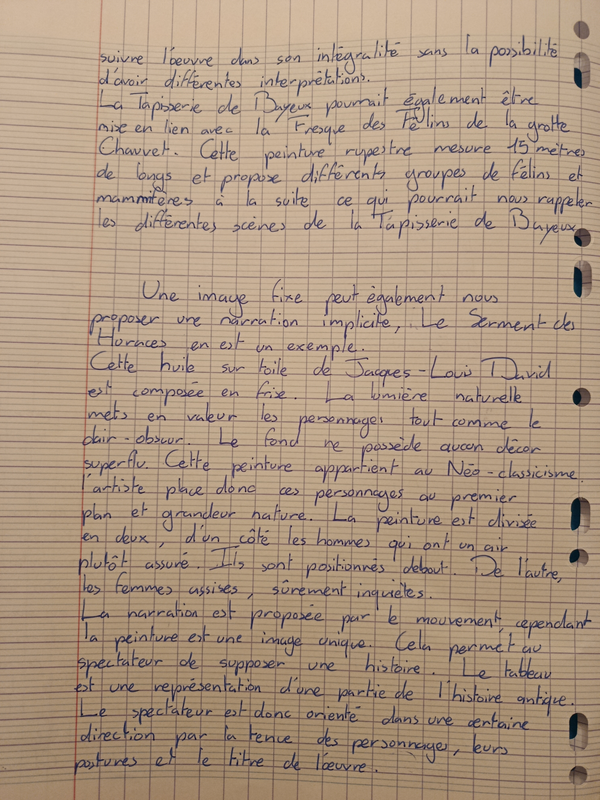 suivre l'œuvre dans son intégralité sans la possibilité
d'avoir différentes interprétations.
La Tapisserie de Bayeux pourrait également être
mise en lien avec la Fresque des Félins de la grotte
Chauvet. Cette peinture rupestre mesure 15 mètres
de longs et propose différents groupes de félins et
mammifères à la suite ce qui pourrait nous rappeler
les différentes scènes de la Tapisserie de Bayeux.
Une image fixe peut également nous
proposer une narration implicite, Le Serment des
Horaces en est un exemple.
Cette huile sur toile de Jacques-Louis David
est composée en frise. La lumière naturelle
mets en valeur les personnages tout comme le
clair-obscur. Le fond ne possède aucun décor
superflu. Cette peinture appartient au Néo-classicisme.
l'artiste place donc ces personnages au premier
plan et grandeur nature. La peinture est divisée
en deux, d'un côté les hommes qui ont un air
plutôt assuré. Ils sont positionnés debout. De l'autre,
les femmes assises, sûrement inquiètes.
La narration est proposée par le mouvement, cependant
la peinture est une image unique. Cela permet au
spectateur de supposer une histoire. Le tableau
est une représentation d'une partie de l'histoire antique.
Le spectateur est donc orienté dans une certaine
direction par la tence des personnages, leurs
postures et le titre de l'œuvre.